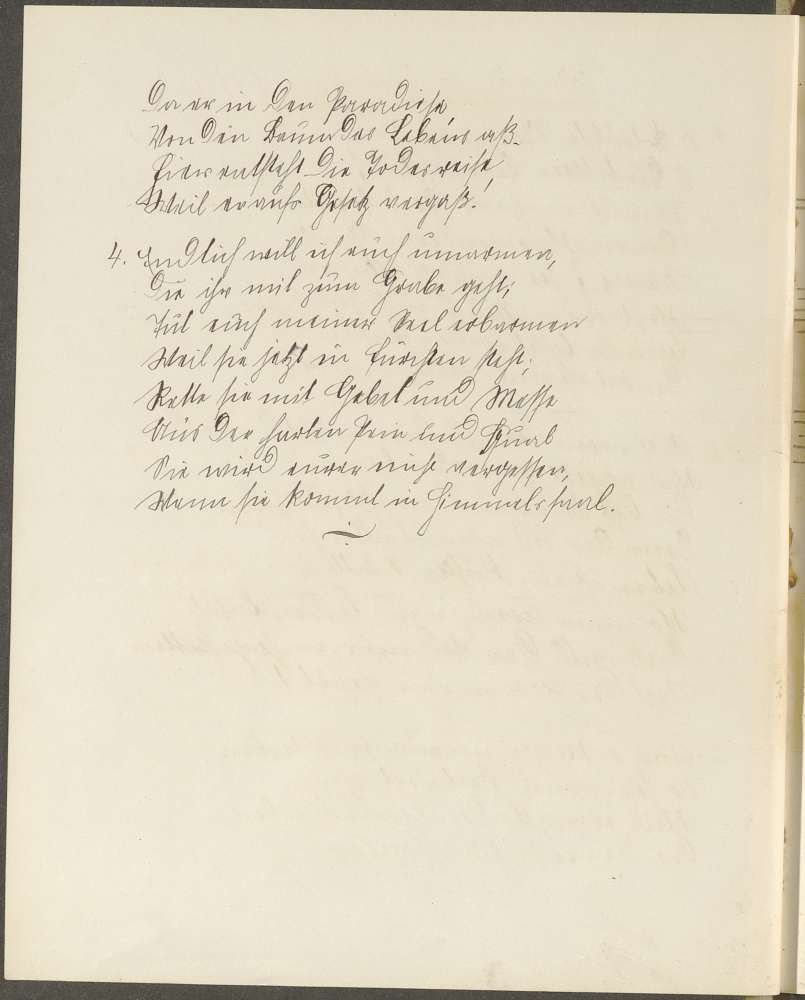 Da er in den Paradiese
Von den Baum des Lebens aß.
Hier entsteht die Todesreise
Weil er aufs Gesetz vergaß!
4. Endlich will ich euch umarmen,
Die ihr mit zum Grabe geht;
Tut euch meiner Seel erbarmen
Weil sie jetzt in Fürchten steht;
Rette sie mit Gebet und Messe
Aus der harten Pein und Qual
Sie wird eurer nicht vergessen,
Wenn sie kommt in Himmelssaal.